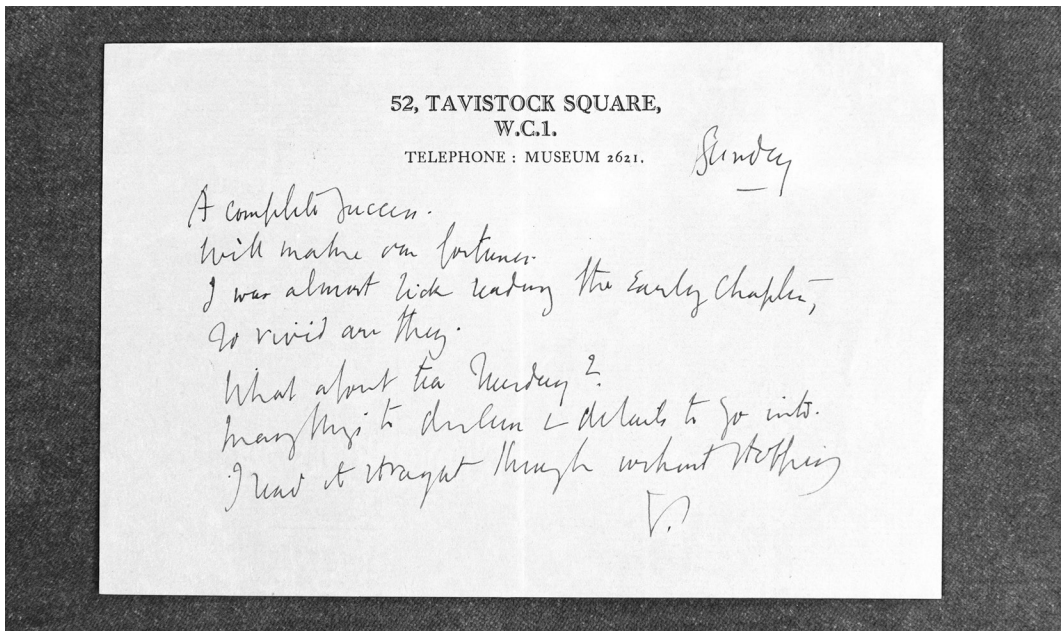 52, TAVISTOCK SQUARE,
W.C.1.
TELEPHONE : MUSEUM 2621.
Sunday
A complete success.
Will make our fortunes.
I was almost sick reading the Early Chapters,
so vivid are they.
What about tea Thursday?
Many things to discuss & details to go into.
I read it straight through without stopping
V.